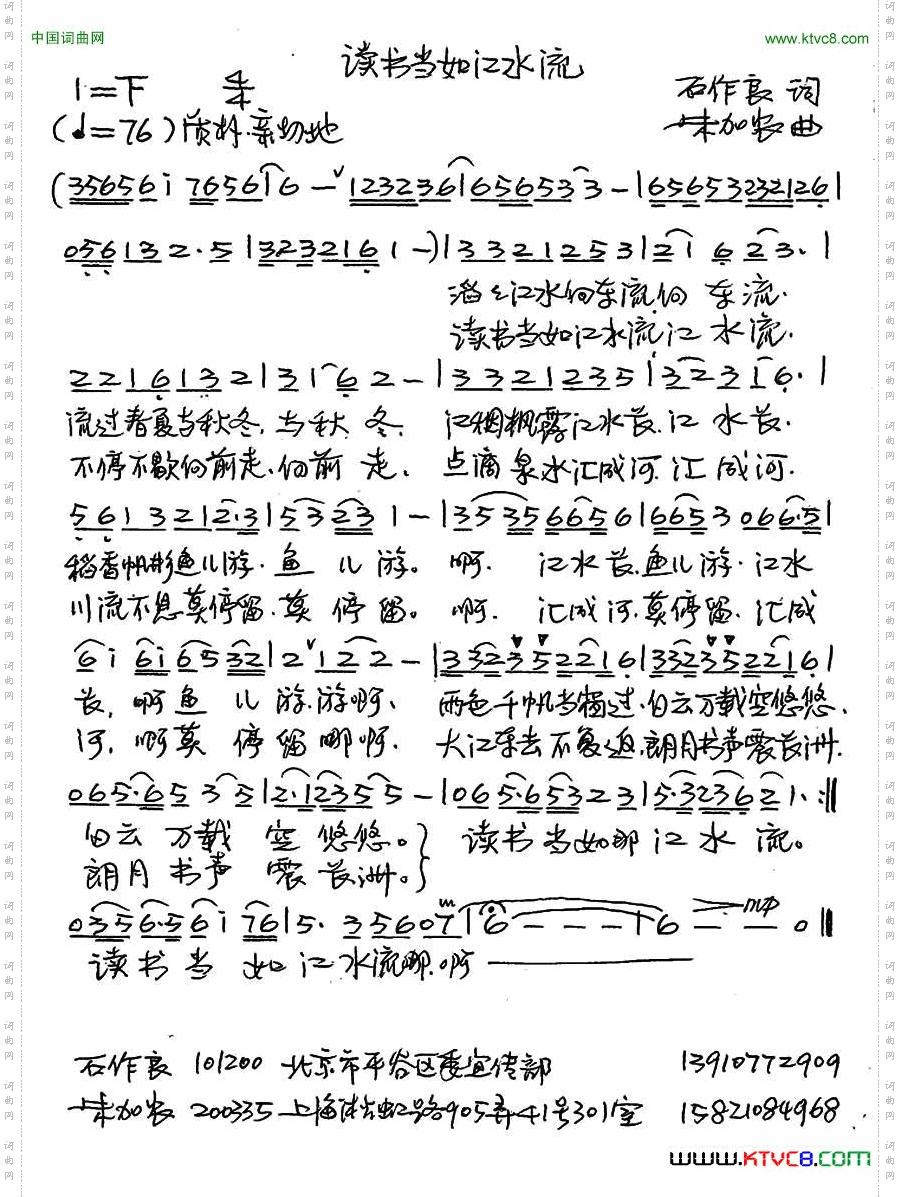 中国词曲网
www.ktvc8.com
读书当如江水流
1=F 4/4
石作良 词
(♩=76) 质朴.亲切地
朱加农 曲
(35656i 76561 6 – 1232361 656533 3 – | 6565323 2126 |
056 132·5 | 3232161 – ) | 3321253 | 21 6 23· |
滔々江水向东流.向 东 流.
读书当如江水流.江 水 流.
2216132 | 31 62 – | 3321235 | 323 16· |
流过春夏与秋冬.与秋 冬.
江水长.江 水 长.
不停不歇向前走.向前 走.
点滴泉水汇成河.汇 成 河.
561 3212·3 | 53 231 – | 35356656 | 6653 066·5 |
稻香帆影鱼儿游.鱼 儿 游。 啊. 江水长.鱼儿游.江水
川流不息莫停留.莫 停 留。 啊. 汇成河.莫停留.汇成
6i 6i6532 | 2 122 – | 33235 2216 | 33235 2216 |
长,啊鱼 儿 游.游啊、 两色千帆当 过.白云万载空悠悠.
河,啊莫 停 留哪啊. 大江东去不复返.朗月书声震长洲.
065·65 35 | 2·12355 – | 065·65323 | 5·323621· :||
白云 万载 空 悠悠。
读书 当如那 江 水 流。
朗月 书声 震 长洲。
0356·56i 76 | 5· 35607 | 6 – – – | 6 – – 0 ||
mp
读书 当 如 江 水流哪.啊
石作良 101200 北京市平谷区委宣传部 13910772909
朱加农 200335 上海 虹路905弄41号301室 15821084968
www.KTVC8.com
词曲网